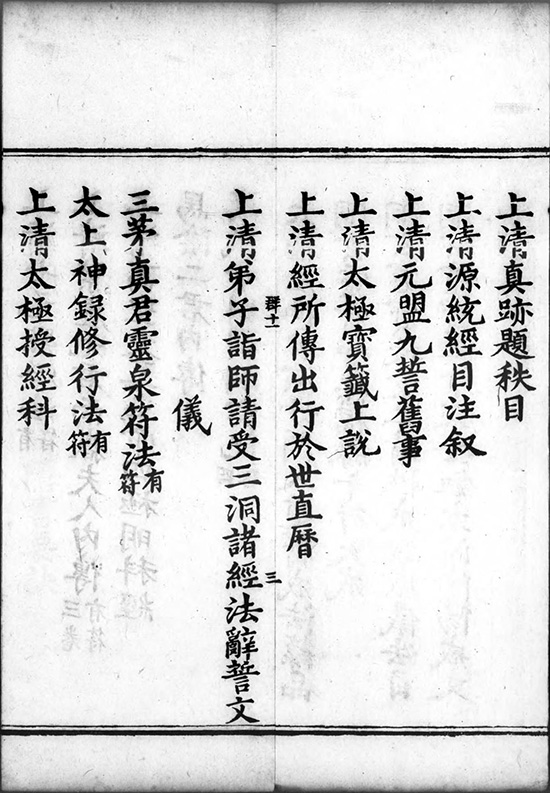 上清真跡題秩目
上清源統經目注叙
上清元盟九誓舊事
上清太極寳籤上說
上清經所傳出行於世直曆
群十
三
上清弟子詣師請受三洞諸經法辭誓文
儀
三茅真君靈泉符法有符
太上神録修行法有符
上清太極授經科